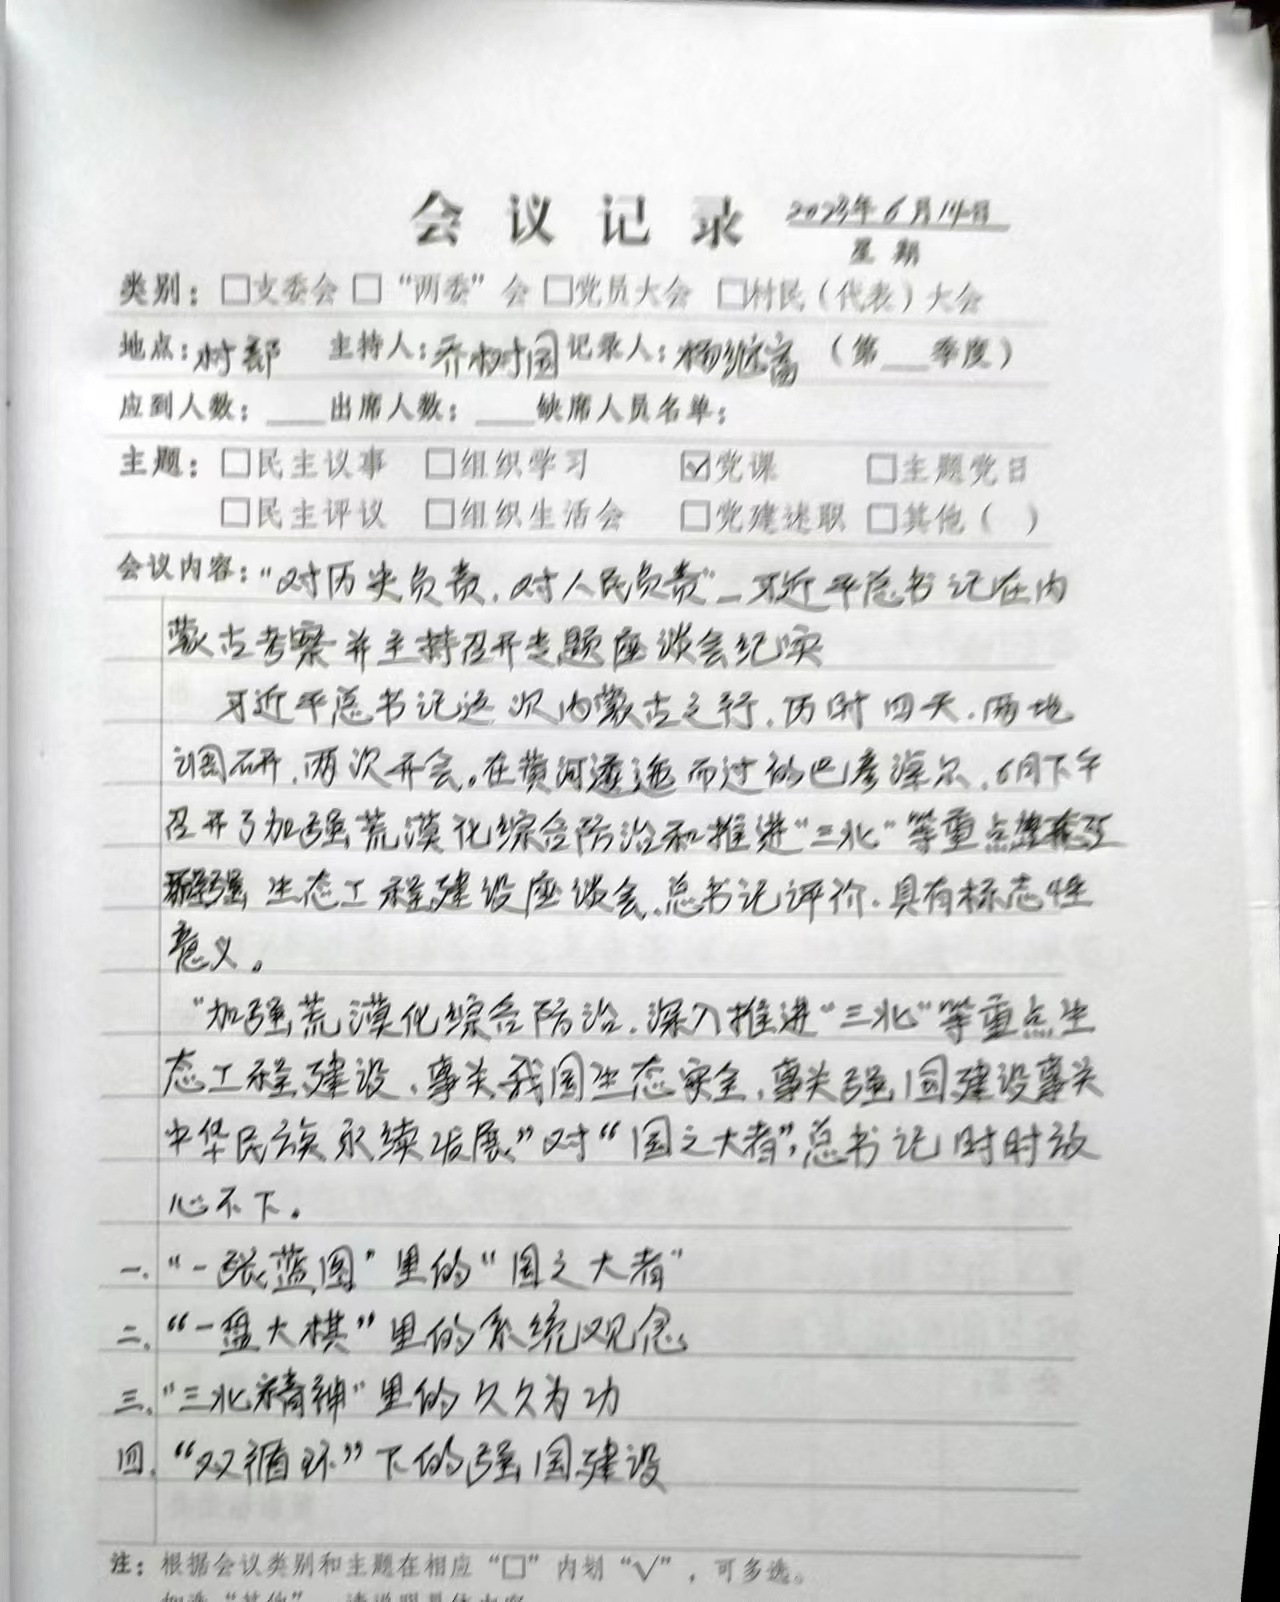 会议记录 2023年6月14日
星期
类别：□支委会 □“两委”会 □党员大会 □村民（代表）大会
地点：村部 主持人：乔树国 记录人：杨继富 （第___季度）
应到人数：____出席人数：____缺席人员名单：
主题：□民主议事 □组织学习 ☑党课 □主题党日
□民主评议 □组织生活会 □党建述职 □其他（ ）
会议内容：“对历史负责，对人民负责”—习近平总书记在内
蒙古考察并主持召开专题座谈会纪实
习近平总书记这次内蒙古之行，历时四天，两地
调研，两次开会。在黄河逶迤而过的巴彦淖尔，6月下午
召开了加强荒漠化综合防治和推进“三北”等重点
生态工程建设座谈会，总书记评价，具有标志性
意义。
“加强荒漠化综合防治，深入推进“三北”等重点生
态工程建设，事关我国生态安全，事关强国建设事关
中华民族永续发展，”对“国之大者”，总书记时时放
心不下。
一、“一张蓝图”里的“国之大者”
二、“一盘大棋”里的系统观念
三、“三北精神”里的久久为功
四、“双循环”下的强国建设
注：根据会议类别和主题在相应“□”内划“√”，可多选。